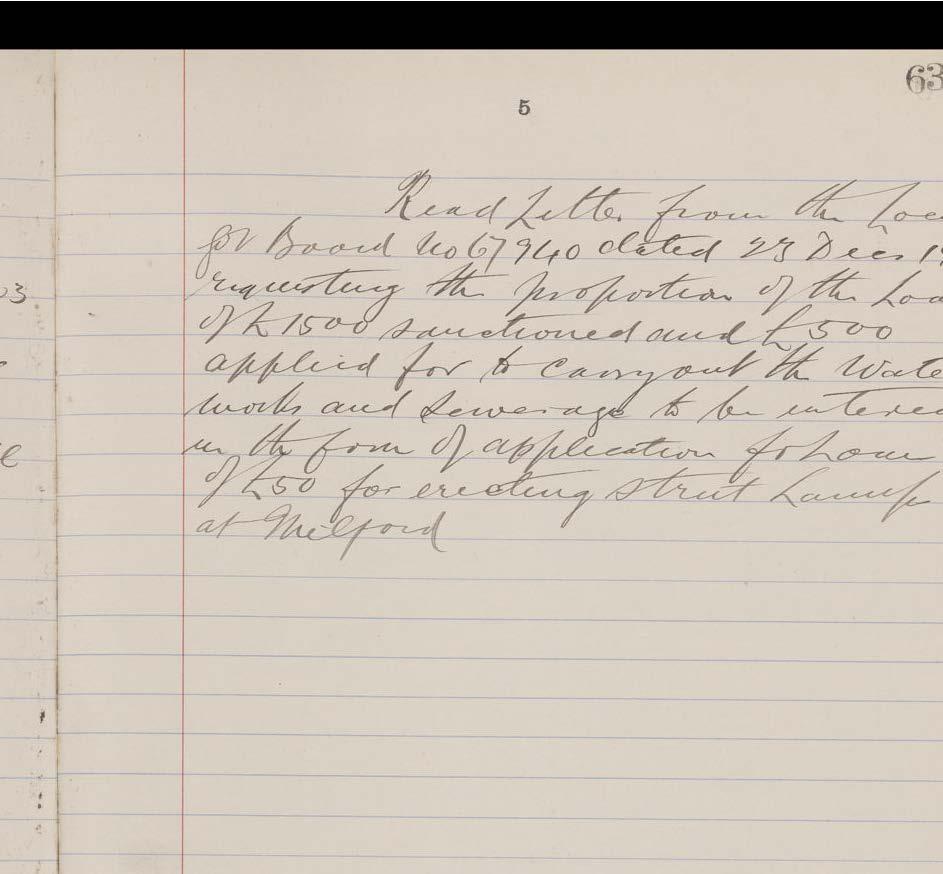 63
5
Read Letter from the Loc
Gov Board No 67940 dated 23 Decr 19
03
requesting the proportion of the Loa
of £1500 sanctioned and £500
applied for to carry out the Wate
works and sewerage to be entered
in the form of application for Loan
of £50 for erecting street Lamps
at Milford